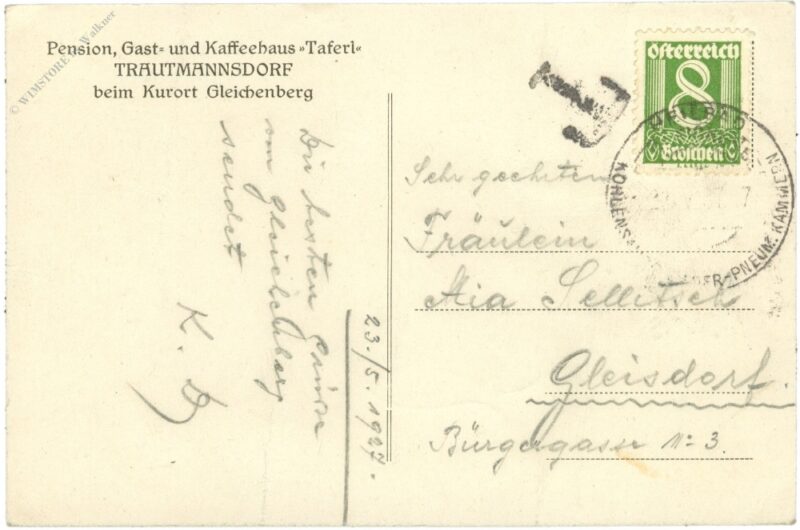 © WIMSTORE Walkner
Pension, Gast- und Kaffeehaus »Taferl«
TRAUTMANNSDORF
beim Kurort Gleichenberg
Die besten Grüsse
von Gleichenberg
sendet
K. D
23./5. 1927.
T
Österreich
8
Groschen
KOHLENS
ER-PNEUM. KAMMERN
7
Sehr geehrten
Fräulein
Mia Sellitsch
Gleisdorf.
Bürgergasse No 3.